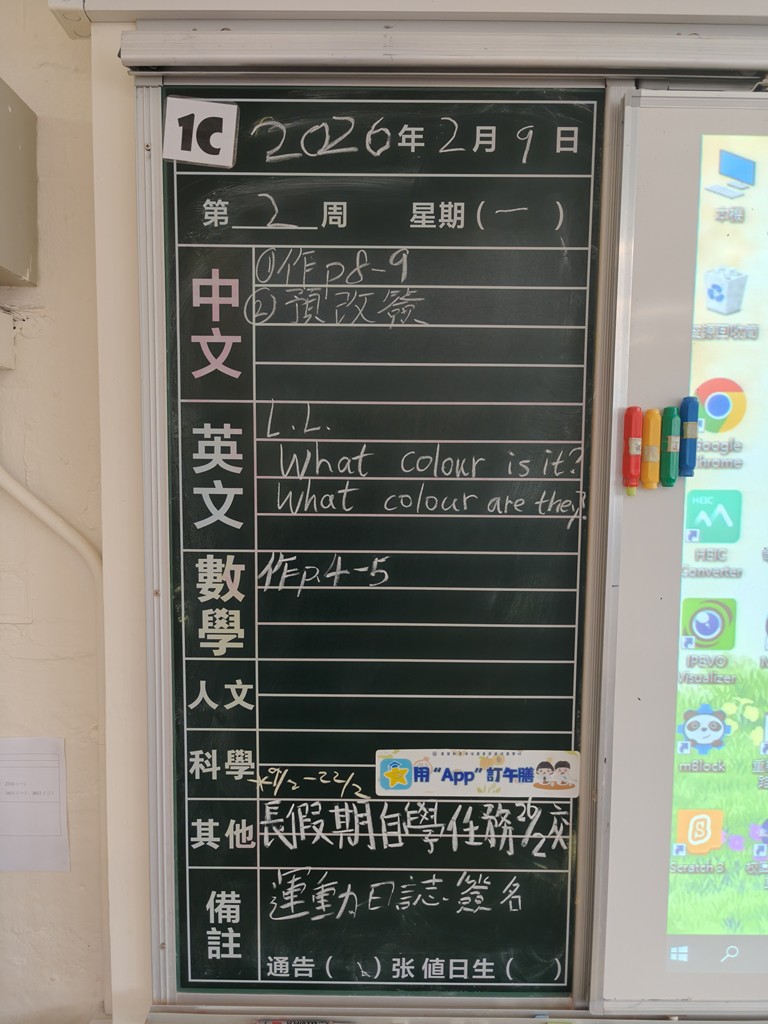 1C
2026年2月9日
第2周 星期(一)
中文
①作p8-9
②預改簽
英文
L.L.
What colour is it?
What colour are they?
數學
作p.4-5
人文
科學
*9/2-22/2
用“App”訂午膳
其他
長假期自學任務26/2交
備註
運動日誌.簽名
通告( )张 值日生( )
本機
Google Chrome
HEIC Converter
IPEVO Visualizer
mBlock
Scratch 3